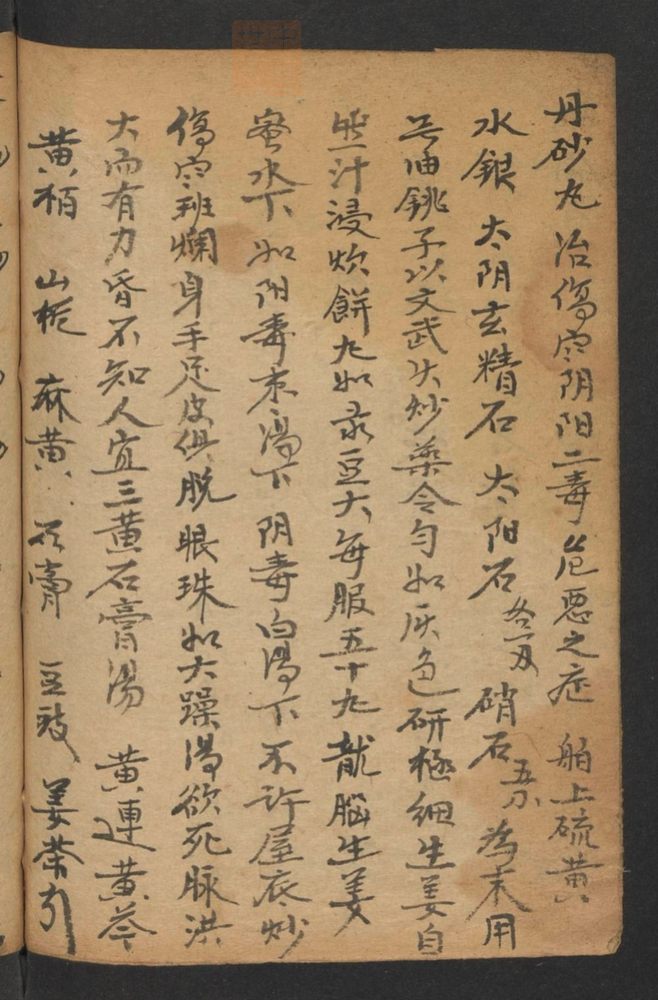 丹砂丸治傷寒阴阳二毒危惡之症 舶上硫黄
水銀 太阴玄精石 太阳石各一刄 硝石五刀 為末用
油銚子以文武火炒藥令勻如灰色研極細生姜自
然汁浸炊餅丸如彔豆大每服五十丸龍腦生姜
蜜水下如阳毒枣湯下阴毒白湯下不許屋底炒
傷寒班爛身手足皮俱脱眼珠如大躁渴欲死脉洪
大而有力昏不知人宜三黄石膏湯 黄連黄芩
黄栢 山栀 麻黄 石膏 豆豉 姜茶引